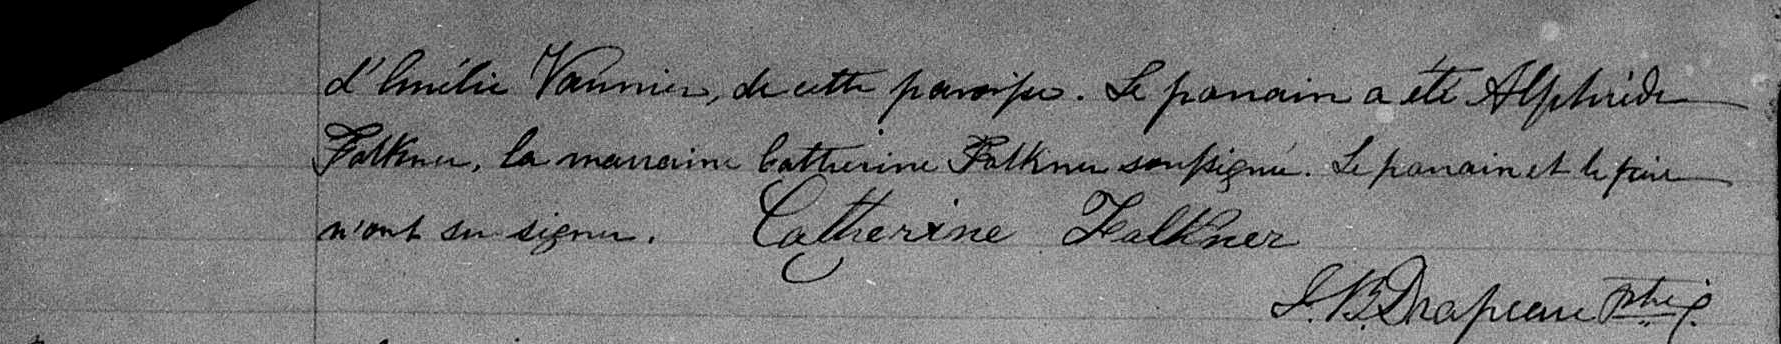 d'Emélie Vannier, de cette paroisse. Le parrain a été Alphrède
Falkner, la marraine Catherine Falkner soussignée. Le parrain et le père
n'ont su signer. Catherine Falkner
J. B. Drapeau Ptre